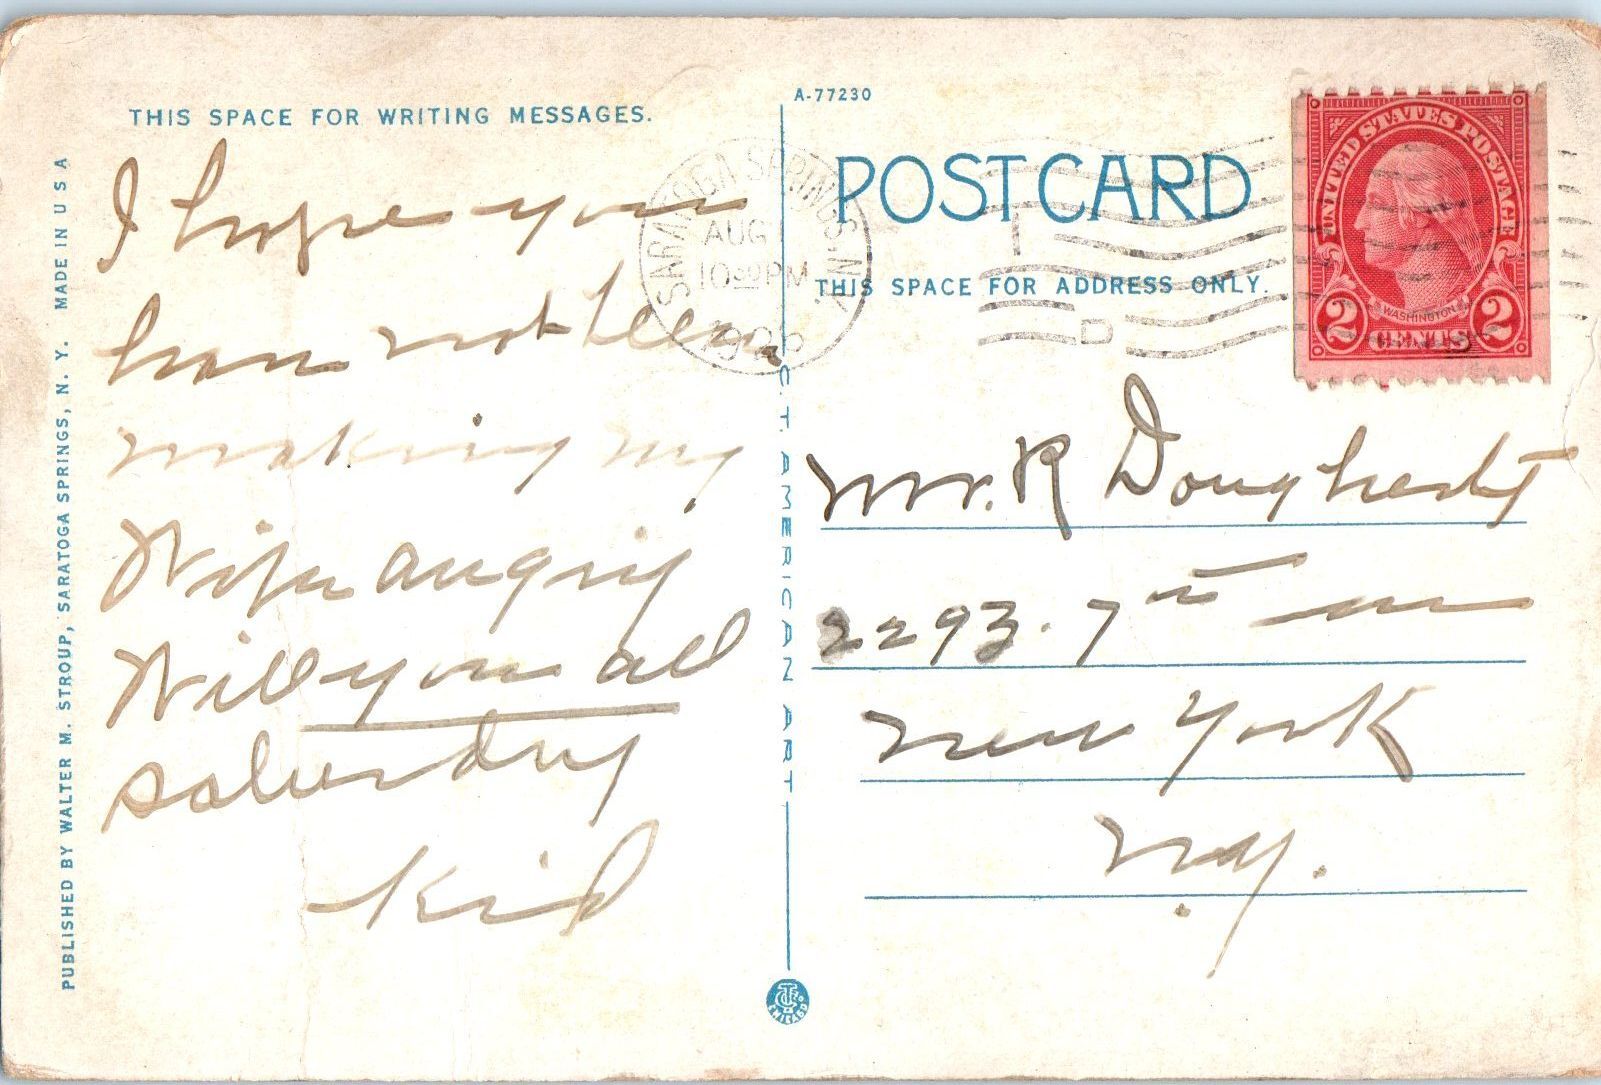 THIS SPACE FOR WRITING MESSAGES.
I hope you
have not been
making my
Wife angry
Will you all
saturday
Kid
PUBLISHED BY WALTER M. STROUP, SARATOGA SPRINGS, N. Y. MADE IN U S A
C. T. AMERICAN ART
CHICAGO
A-77230
POST CARD
THIS SPACE FOR ADDRESS ONLY.
SARATOGA SPRINGS N.Y.
AUG
10 30 PM
UNITED STATES POSTAGE
WASHINGTON
2 CENTS 2
Mr. R Dougherty
2293. 7th
New York
N.Y.